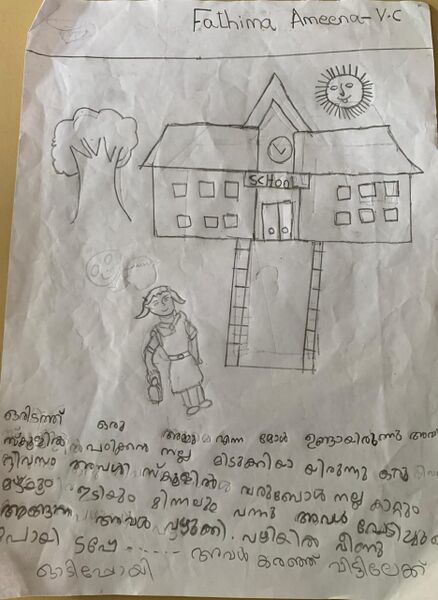 Fathima Ameena - V.C
SCHOOL
ഒരിടത്ത് ഒരു അമ്മു എന്ന മോൾ ഉണ്ടായിരുന്നു
സ്കൂളിൽ പഠിക്കാൻ നല്ല മിടുക്കിയാ യിരുന്നു ഒരു
ദിവസം അവൾ സ്കൂളിൽ വരുബോൾ നല്ല കാറ്റും
മഴയും ഇടിയും മിന്നലും വന്നു അവൾ പേടിച്ചു
അങ്ങനെ അവൾ വഴുക്കി. വഴിയിൽ വീണു
പോയി ടപ്പേ...... അവൾ കരഞ്ഞ് വീട്ടിലേക്ക്
ഓടിപ്പോയി